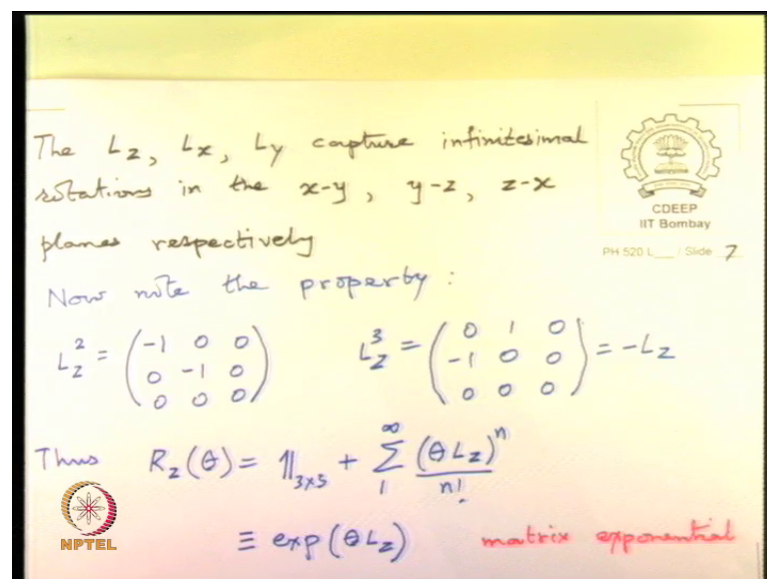 The Lz, Lx, Ly capture infinitesimal
rotations in the x-y, y-z, z-x
planes respectively
CDEEP
IIT Bombay
PH 520 L___ / Slide 7
Now note the property :
Lz² = (-1 0 0   Lz³ = (0 1 0
0 -1 0   -1 0 0   = -Lz
0 0 0)   0 0 0)
Thus Rz(θ) = 𝟙3x3 + ∑₁^∞ (θLz)ⁿ / n!
≡ exp(θLz) matrix exponential
NPTEL